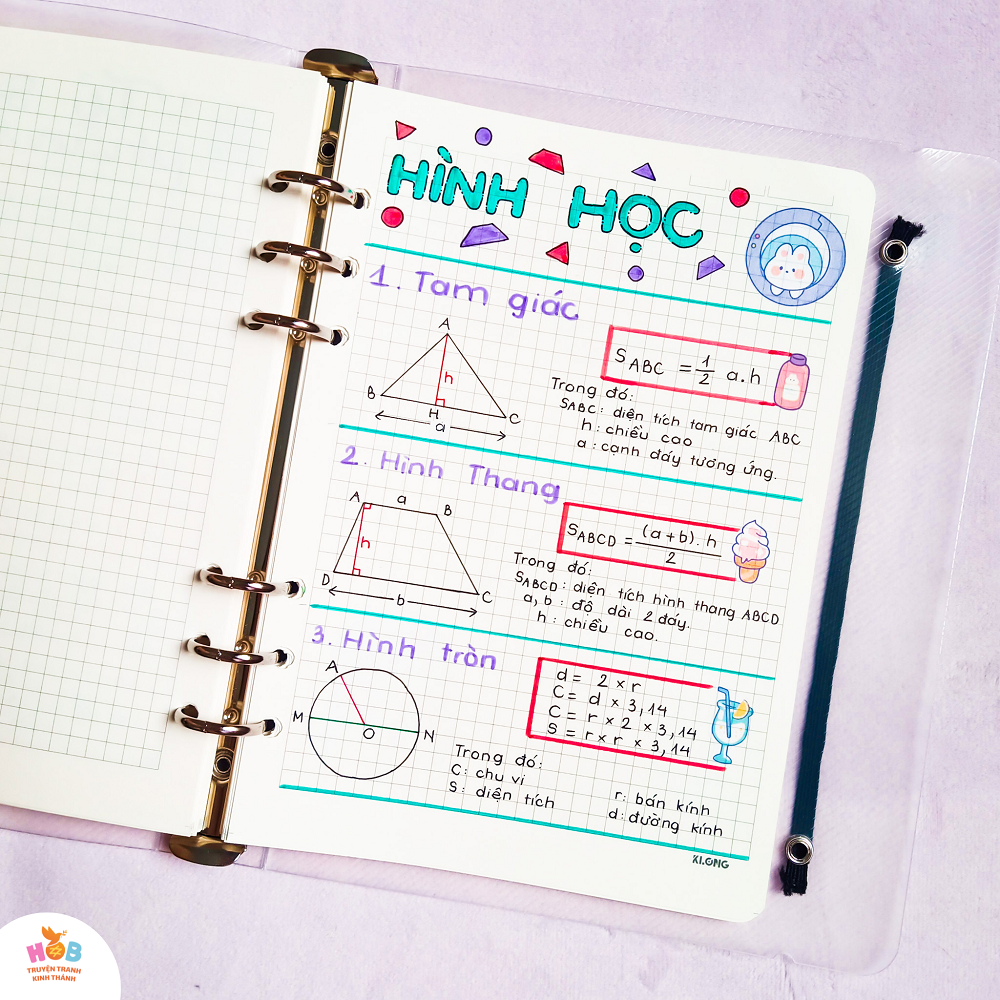 HÌNH HỌC
1. Tam giác
A
h
B
H
C
a
S ABC = 1/2 a.h
Trong đó:
SABC: diện tích tam giác ABC
h: chiều cao
a: cạnh đáy tương ứng.
2. Hình Thang
A
a
B
h
D
C
b
SABCD = (a+b).h/2
Trong đó:
SABCD: diện tích hình thang ABCD
a, b: độ dài 2 đáy.
h: chiều cao.
3. Hình tròn
A
M
O
N
d = 2 x r
C = d x 3,14
C = r x 2 x 3,14
S = r x r x 3,14
Trong đó:
C: chu vi
S: diện tích
r: bán kính
d: đường kính
KLONG
HOB
TRUYỆN TRANH
KINH THÁNH